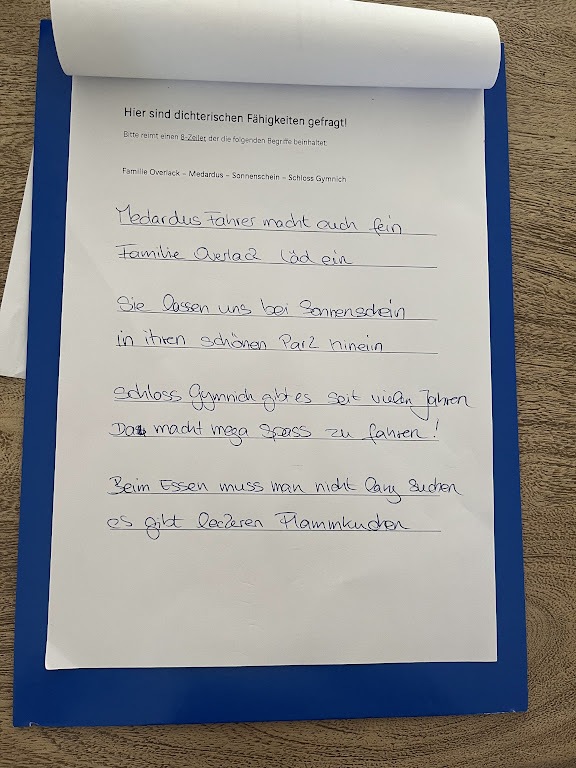 Hier sind dichterischen Fähigkeiten gefragt!
Bitte reimt einen 8-Zeiler der die folgenden Begriffe beinhaltet:
Familie Overlack – Medardus – Sonnenschein – Schloss Gymnich
Medardus Fahrer macht euch fein
Familie Overlack läd ein
Sie lassen uns bei Sonnenschein
in ihren schönen Park hinein
Schloss Gymnich gibt es seit vielen Jahren
Da macht mega Spass zu fahren!
Beim Essen muss man nicht lang suchen
es gibt leckeren Flammkuchen